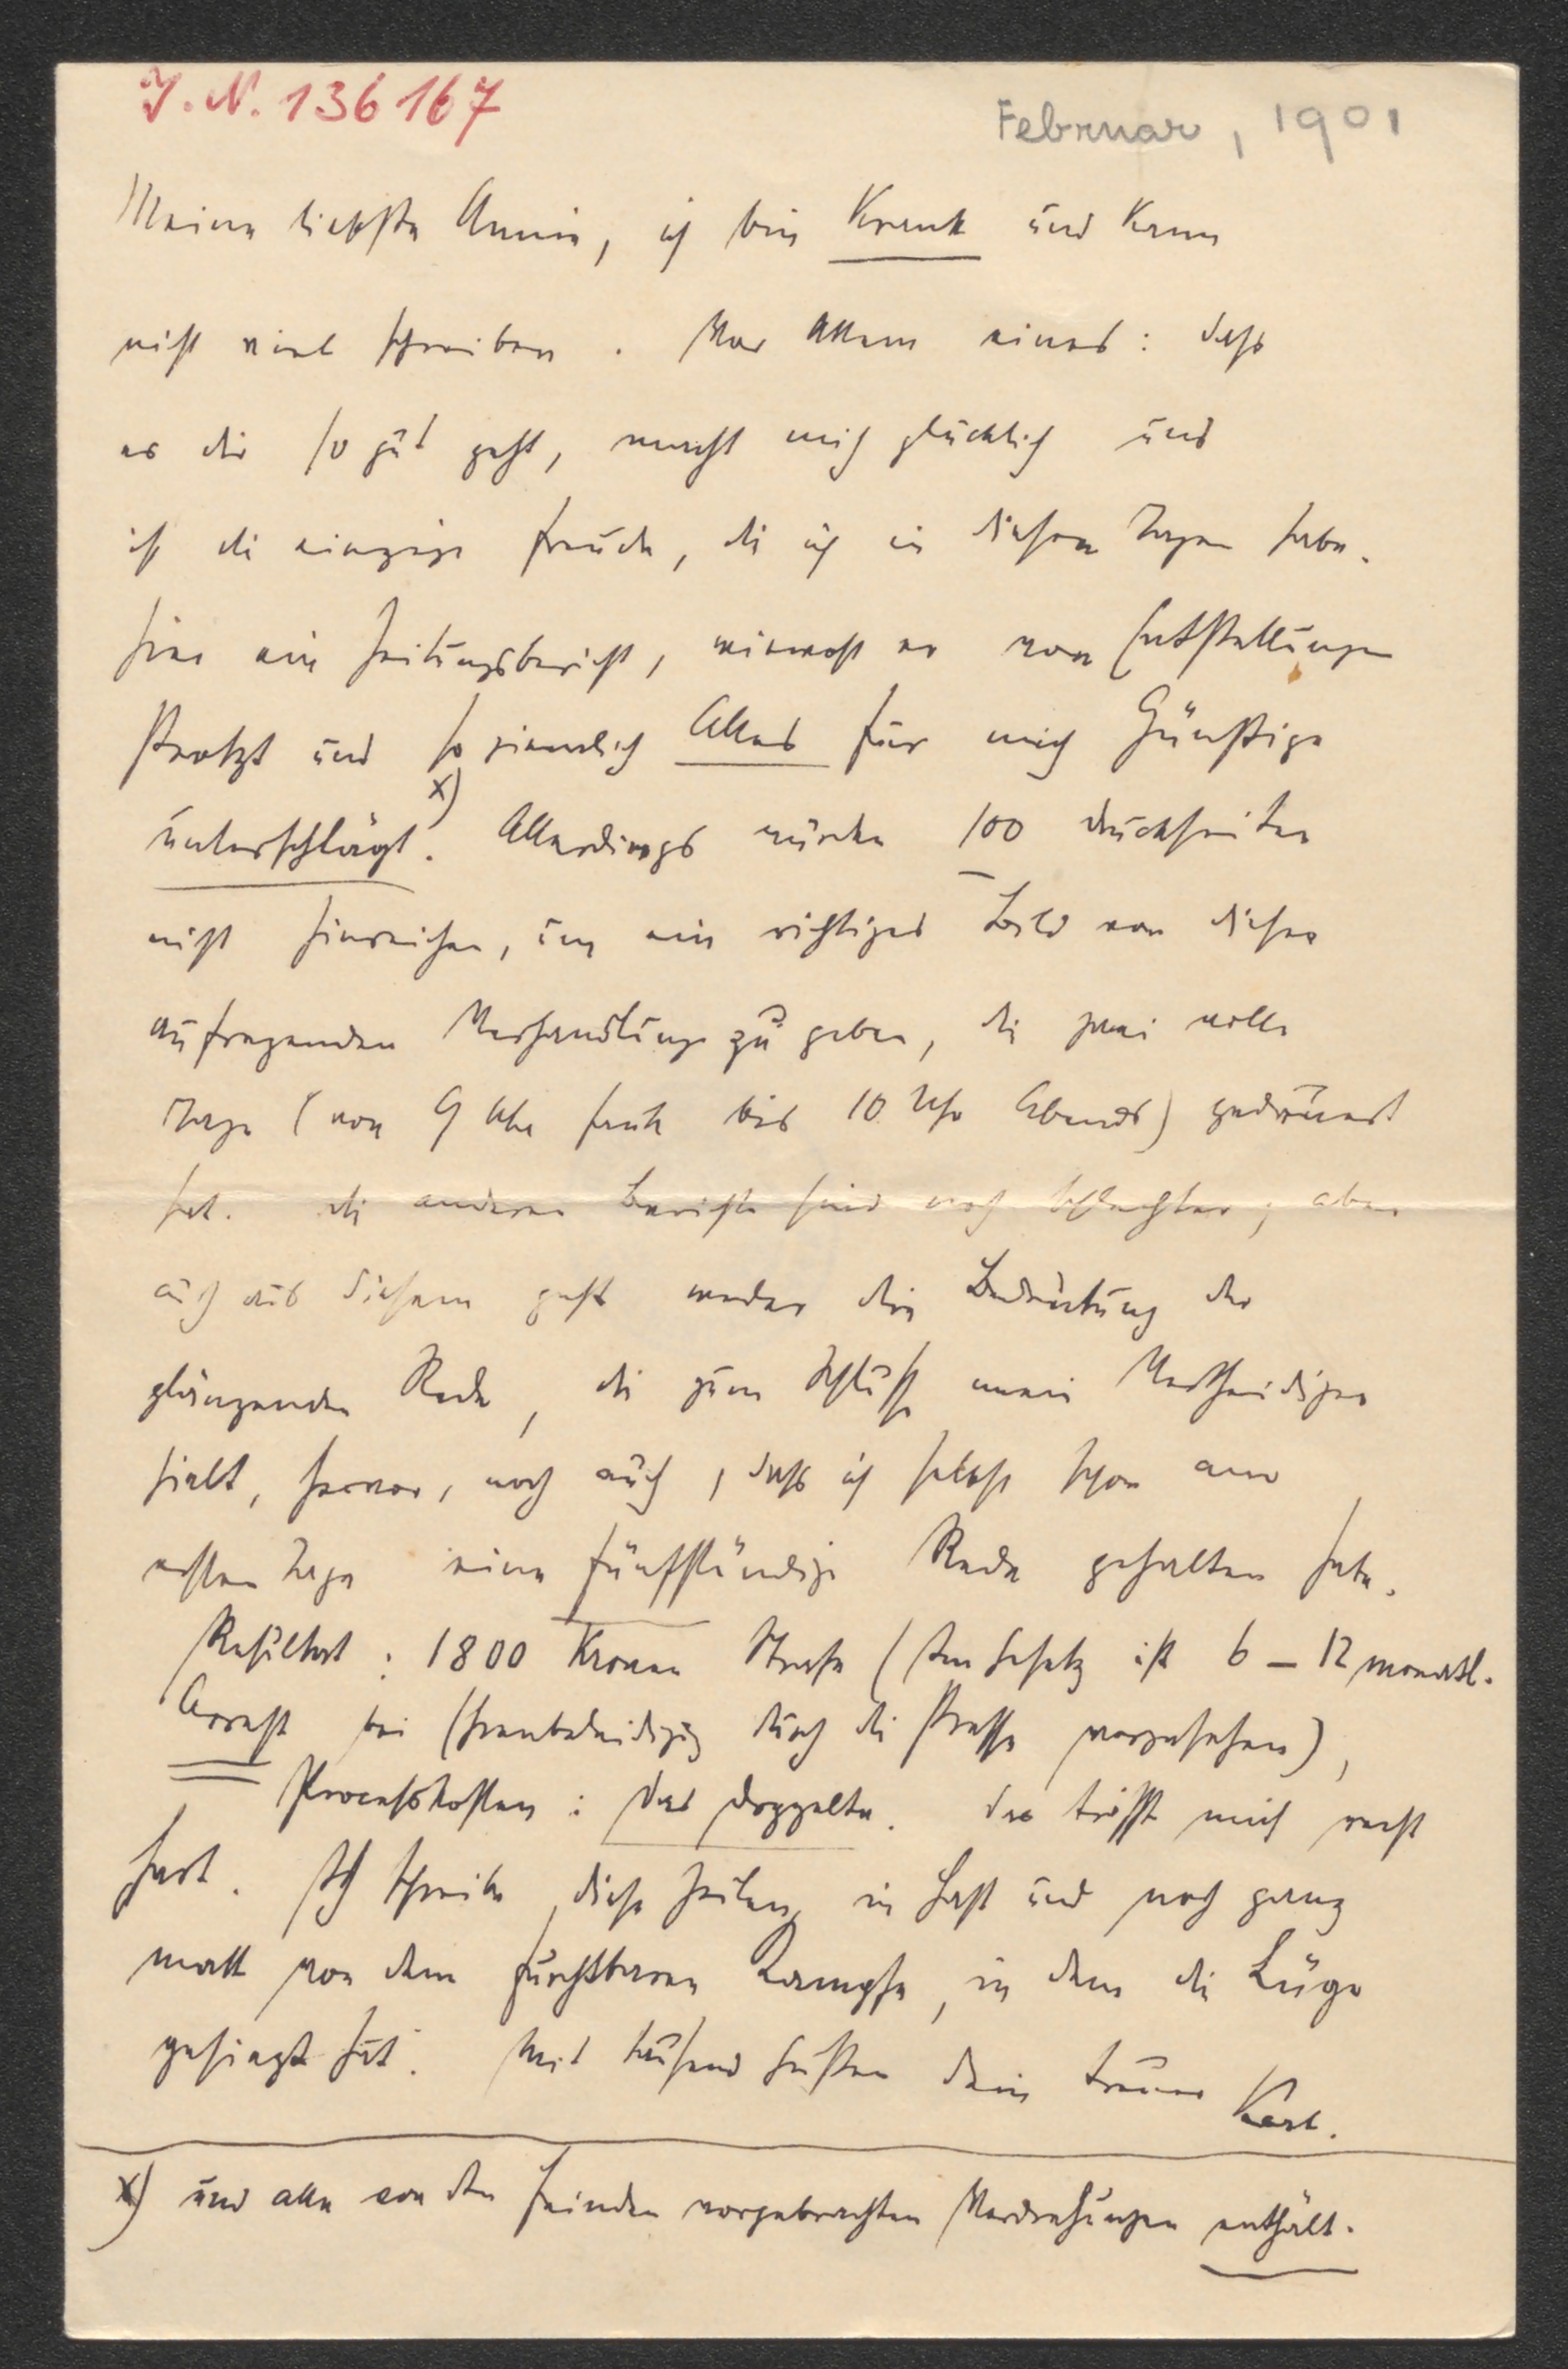 J. N. 136167
Februar, 1901
Meine liebste Annie, ich bin krank und kann
nicht viel schreiben. Vor Allem eines: dass
es dir so gut geht, macht mich glücklich und
ist die einzige Freude, die ich in diesen Tagen habe.
Hier ein Zeitungsbericht, wiewohl er von Entstellungen
strotzt und so ziemlich Alles für mich Günstige
unterschlägt. x) Allerdings würden 100 Druckseiten
nicht hinreichen, um ein richtiges Bild von dieser
aufregenden Verhandlung zu geben, die zwei volle
Tage (von 9 Uhr früh bis 10 Uhr Abends) gedauert
hat. Die anderen Berichte sind noch schlechter; aber
auch aus diesem geht weder die Bedeutung der
glänzenden Rede, die zum Schluss mein Vertheidiger
hielt, hervor, noch auch, dass ich selbst schon am
ersten Tage eine fünfstündige Rede gehalten habe.
Resultat: 1800 Kronen Strafe (Im Gesetz ist 6 – 12 monatl.
Arrest bei Ehrenbeleidigung durch die Presse vorgesehen),
Processkosten: das doppelte. Das trifft mich recht
hart. Ich schreibe diese Zeilen in Hast und noch ganz
matt von dem furchtbaren Kampfe, in dem die Lüge
gesiegt hat. Mit tausend Grüßen dein treuer Karl.
x) und alle von den Feinden vorgebrachten Verdrehungen enthält.